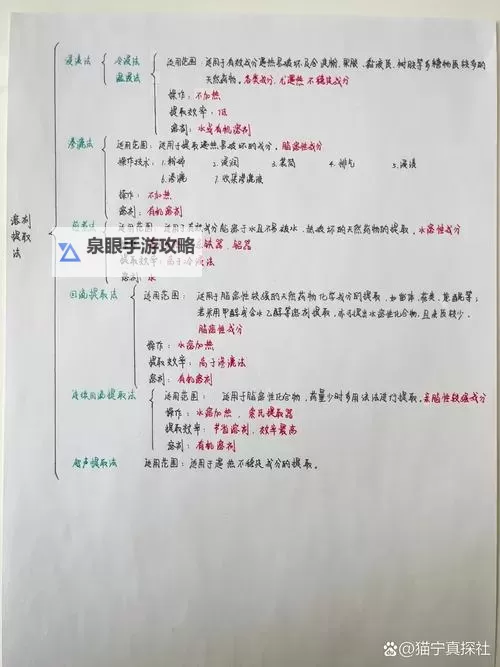 溶剂提取法
浸渍法 冷浸法 适用范围：适用于有效成分遇热易破坏及含淀粉、果胶、黏液质、树胶等多糖物质较多的
温浸法 天然药物。各类成分，尤遇热不稳定成分
操作：不加热
提取效率：低
溶剂：水或有机溶剂
渗漉法 适用范围：适用于提取遇热易破坏的成分。脂溶性成分
操作技术：1.粉碎 2.浸润 3.装筒 4.排气 5.浸渍
6.渗漉 7.收集渗漉液
操作：不加热
溶剂：有机溶剂
适用范围：适用于有效成分能溶于水且不易被水、热破坏的天然药物的提取。水溶性成分
铁器、铝器
提取效率：高于冷浸法
溶剂：水
泉眼手游攻略
回流提取法 适用范围：适用于脂溶性较强的天然药物化学成分的提取，如甾体、蒽类、萜醌等；
若采用甲醇或含水乙醇等溶剂提取，亦可提出水溶性化合物，且杂质较少。
脂溶性成分
操作：水浴加热
提取效率：高于渗漉法
溶剂：有机溶剂
连续回流提取法 适用范围：适用于脂溶性化合物，药量少时多用该法进行提取。亲脂性较强成分
操作：水浴加热，索氏提取器
提取效率：节省溶剂，效率最高
溶剂：有机溶剂
超声提取法 适用范围：适用于遇热不稳定成分的提取。
搜狐号@猫宁真探社